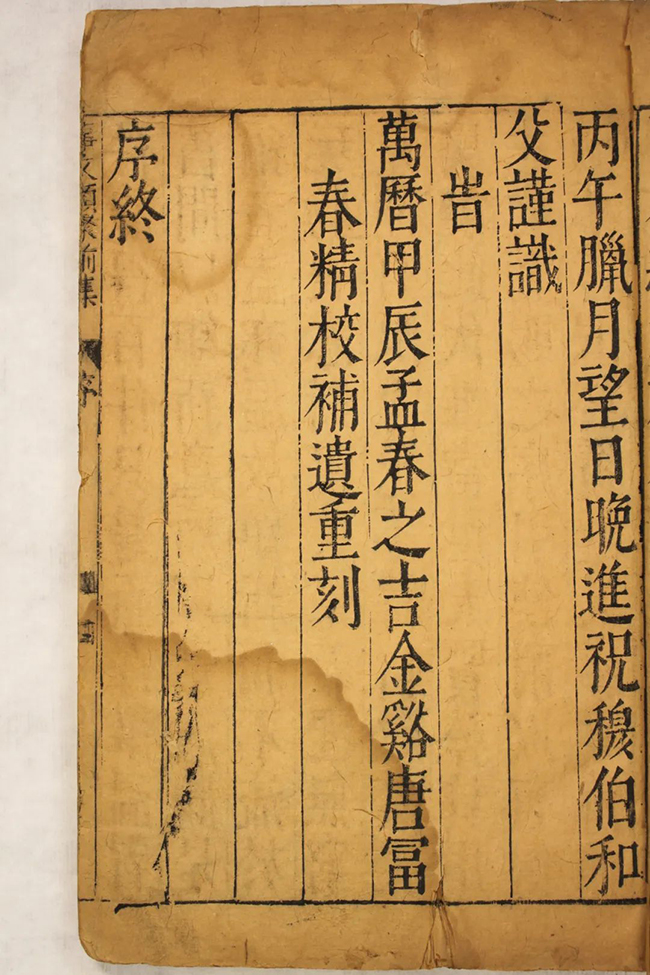 丙午臘月望日晚進祝穆伯和
父謹識
旹
萬曆甲辰孟春之吉金谿唐冨
春精校補遺重刻
序終